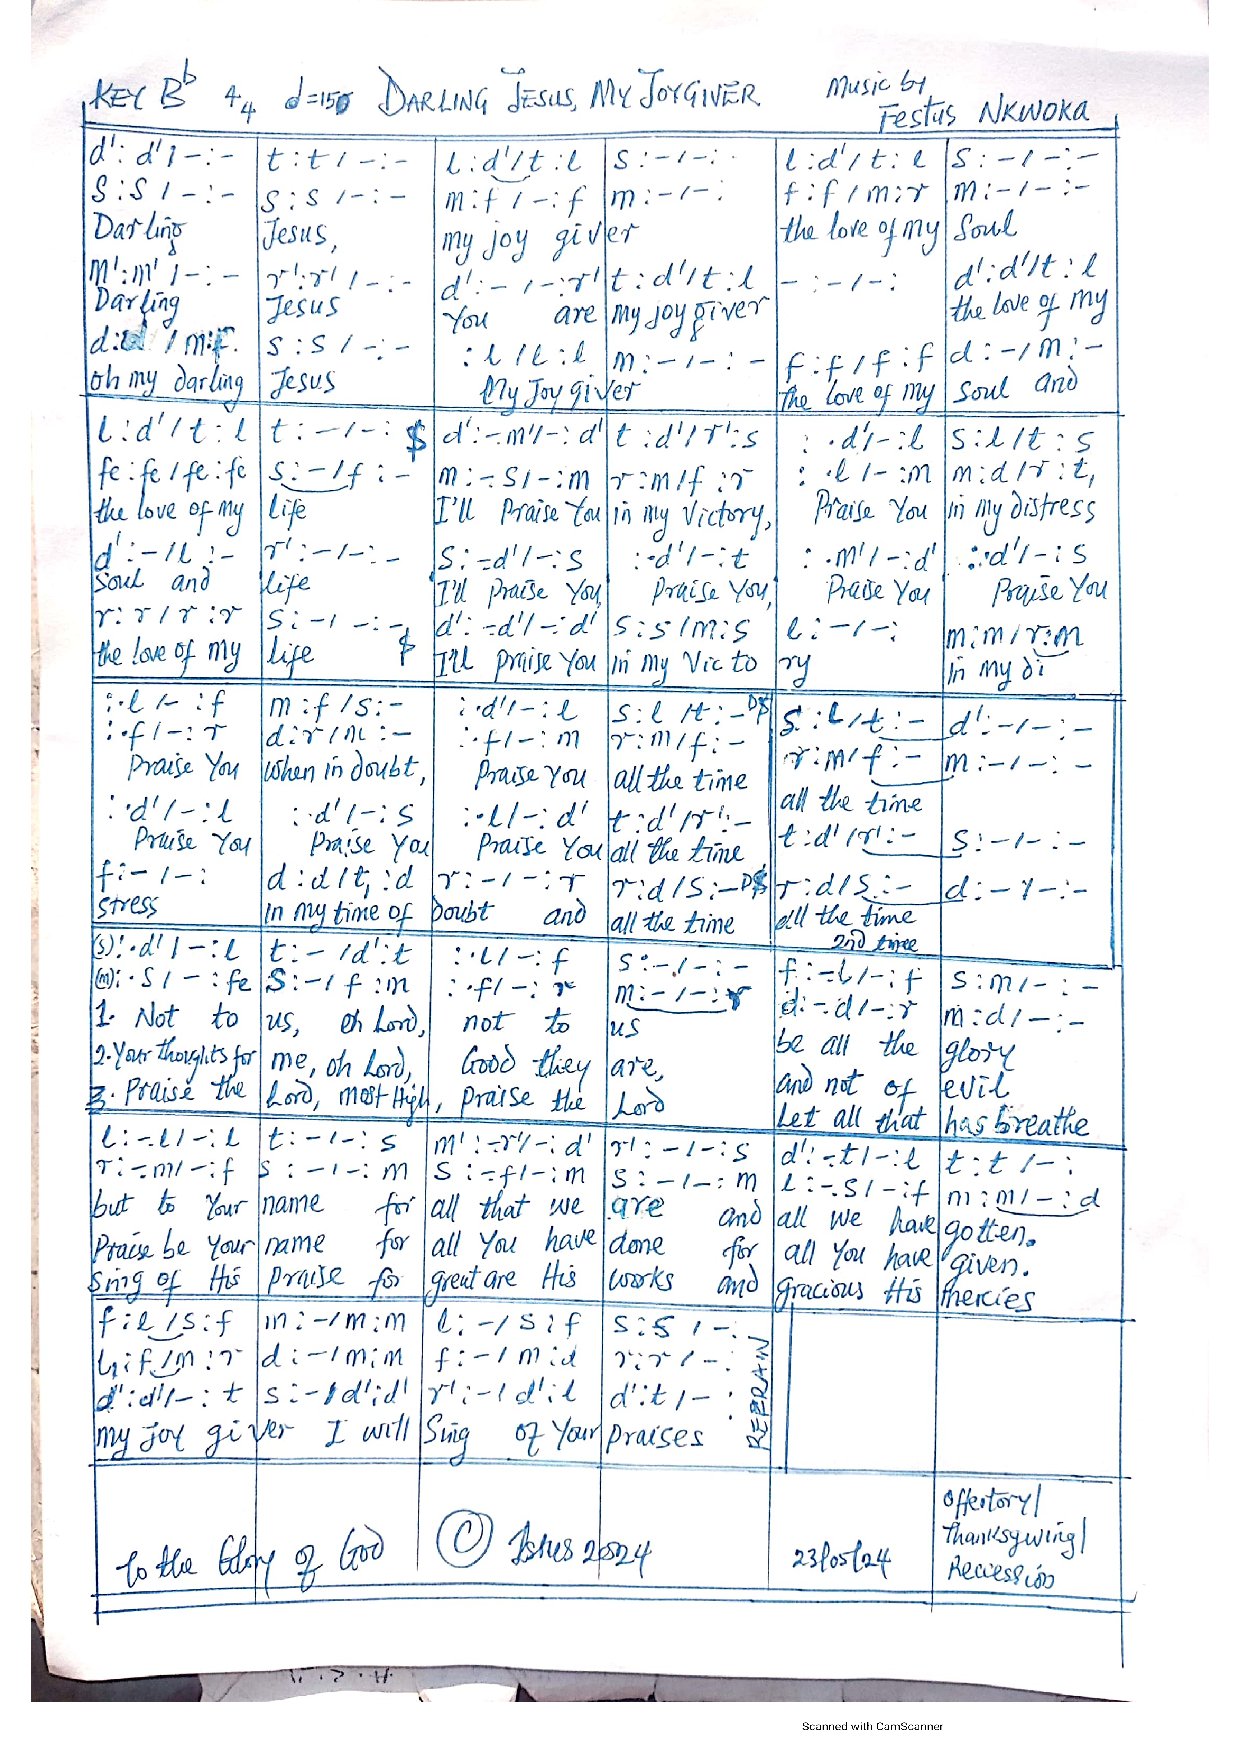 KEY Bb 4/4 d=150 DARLING JESUS, MY JOYGIVER Music by
Festus NKWOKA
d': d'/ -:- t : t / -:- l : d'/ t : l s : - / -: l : d'/ t : l s : - / -: -
s : s / -:- s : s / -:- m : f / -: f m : - / -: f : f / m : r m : - / - : -
Darling Jesus, my joy giver the love of my Soul
m': m' / -: - r': r' / -: - d': - / -: r' t : d'/ t : l - : - / -: d': d'/ t : l
Darling Jesus You are my joy giver the love of my
d: / m:f. s : s / -: - : l / t : l m : - / - : - f : f / f : f d : - / m : -
oh my darling Jesus My Joy giver the love of my Soul and
l : d' / t : l t : - / - : $ d': -.m'/ -: d' t : d'/ r': s : .d'/ -: l s : l / t : s
fe : fe / fe : fe s : - / f : - m : -. s / -: m r : m / f : r : .l / -: m m : d / r : t,
the love of my life I'll Praise You in my Victory, Praise You in my distress
d': - / l : - r': - / - : - s : -. d'/ -: s : .d'/ -: t : .m'/ -: d' : .d'/ -: s
Soul and life I'll Praise You, Praise You, Praise You Praise You
r : r / r : r s : - / - : - d': -. d'/ -: d' s : s / m : s l : - / -: m : m / r : m
the love of my life $ I'll praise You in my Vic to ry in my di
: .l / -: f m : f / s : - : .d'/ -: l s : l / t : - D$ s : l / t : - d': - / -: -
: .f / -: r d : r / m : - : .f / -: m r : m / f : - r : m / f : - m : - / -: -
Praise You When in doubt, Praise You all the time all the time
: .d'/ -: l : .d'/ -: s : .l / -: d' t : d'/ r': - t : d'/ r': - s : - / -: -
Praise You Praise You Praise You all the time
f : - / -: d : d / t, : d r : - / -: r r : d / s : - D$ r : d / s : - d : - / -: -
stress in my time of doubt and all the time all the time
2nd time
(s): .d' / -: l t : - / d': t : .l / -: f s : - / -: - f : -. l / -: f s : m / - : -
(m): . s / -: fe s : - / f : m : .f / -: r m : - / -: r d : -. d / -: r m : d / -: -
1. Not to us, oh Lord, not to us be all the glory
2. Your thoughts for me, oh Lord, Good they are, and not of evil
3. Praise the Lord, most High, praise the Lord Let all that has breathe
l : -. l / -: l t : - / -: s m': -. r'/ -: d' r': - / -: s d': -. t / -: l t : t / -:
r : -. m / -: f s : - / -: m s : -. f / -: m s : - / -: m l : -. s / -: f m : m / -: d
but to Your name for all that we are and all we have gotten.
Praise be Your name for all You have done for all You have given.
Sing of His praise for great are His works and gracious His mercies
f : l / s : f m : - / m : m l : - / s : f s : s / -:
l, : f / m : r d : - / m : m f : - / m : d r : r / -:
d': d'/ -: t s : - / d': d' r': - / d': l d': t / - :
my joy giver I will Sing of Your praises
REFRAIN
To the Glory of God © 2024 23/05/24
Offertory/
Thanksgiving/
Recession
Scanned with CamScanner